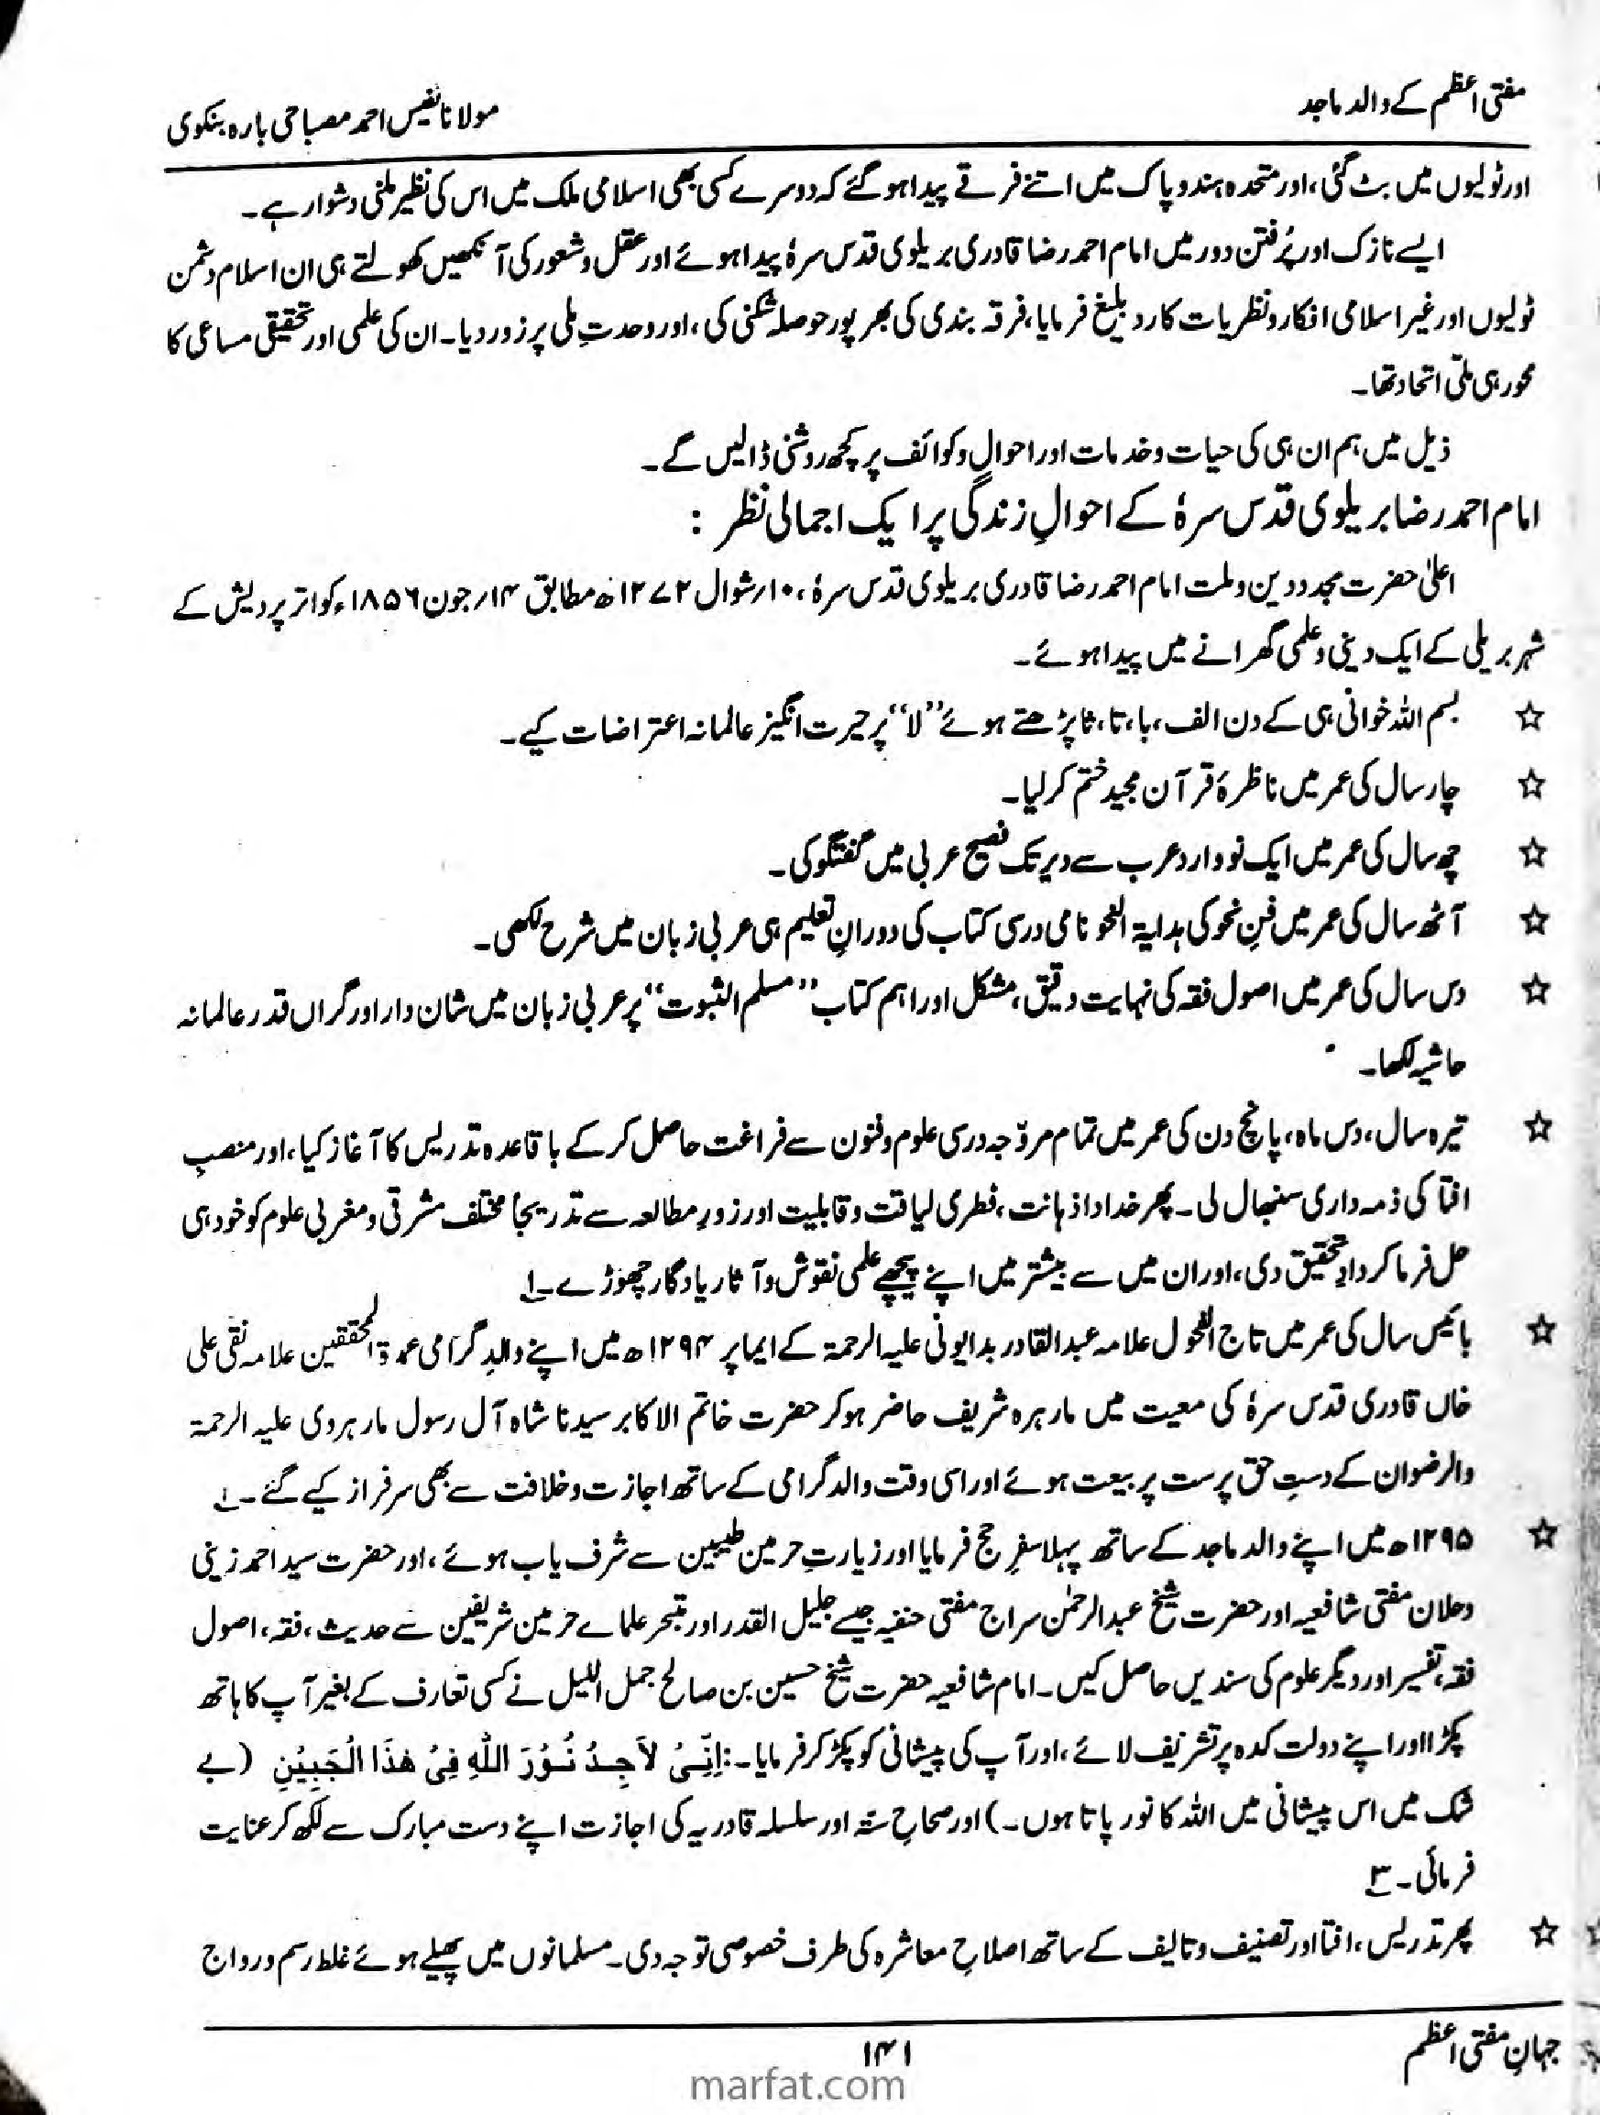 مفتی اعظم کے والد ماجد
مولانا نفیس احمد مصباحی بارہ بنکوی
اور ٹولیوں میں بٹ گئی، اور متحدہ ہندو پاک میں اتنے فرقے پیدا ہو گئے کہ دوسرے کسی بھی اسلامی ملک میں اس کی نظیر ملنی دشوار ہے۔
ایسے نازک اور پُر فتن دور میں امام احمد رضا قادری بریلوی قدس سرہٗ پیدا ہوئے اور عقل و شعور کی آنکھیں کھولتے ہی ان اسلام دشمن
ٹولیوں اور غیر اسلامی افکار و نظریات کا رد بلیغ فرمایا، فرقہ بندی کی بھر پور حوصلہ شکنی کی، اور وحدتِ ملی پر زور دیا۔ ان کی علمی اور تحقیقی مساعی کا
محور ہی ملّی اتحاد تھا۔
ذیل میں ہم ان ہی کی حیات و خدمات اور احوال و کوائف پر کچھ روشنی ڈالیں گے۔
امام احمد رضا بریلوی قدس سرہٗ کے احوالِ زندگی پر ایک اجمالی نظر :
اعلیٰ حضرت مجدد دین و ملت امام احمد رضا قادری بریلوی قدس سرہٗ، ۱۰؍شوال ۱۲۷۲ھ مطابق ۱۴؍جون ۱۸۵۶ء کو اتر پردیش کے
شہر بریلی کے ایک دینی و علمی گھرانے میں پیدا ہوئے۔
☆ بسم اللہ خوانی ہی کے دن الف، با، تا، ثا پڑھتے ہوئے ’’لا‘‘ پر حیرت انگیز عالمانہ اعتراضات کیے۔
☆ چار سال کی عمر میں ناظرۂ قرآن مجید ختم کر لیا۔
☆ چھ سال کی عمر میں ایک نووارد عرب سے دیر تک فصیح عربی میں گفتگو کی۔
☆ آٹھ سال کی عمر میں فنِ نحو کی ہدایۃ النحو نامی درسی کتاب کی دورانِ تعلیم ہی عربی زبان میں شرح لکھی۔
☆ دس سال کی عمر میں اصول فقہ کی نہایت دقیق، مشکل اور اہم کتاب ’’مسلم الثبوت‘‘ پر عربی زبان میں شان دار اور گراں قدر عالمانہ
حاشیہ لکھا۔
☆ تیرہ سال، دس ماہ، پانچ دن کی عمر میں تمام مروّجہ درسی علوم و فنون سے فراغت حاصل کر کے باقاعدہ تدریس کا آغاز کیا، اور منصبِ
افتا کی ذمہ داری سنبھال لی۔ پھر خداداد ذہانت، فطری لیاقت و قابلیت اور زورِ مطالعہ سے تدریجاً مختلف مشرقی و مغربی علوم کو خود ہی
حل فرما کر دادِ تحقیق دی، اور ان میں سے بیشتر میں اپنے پیچھے علمی نقوش و آثار یادگار چھوڑے۔ ۱
☆ بائیس سال کی عمر میں تاج الفحول علامہ عبدالقادر بدایونی علیہ الرحمۃ کے ایما پر ۱۲۹۴ھ میں اپنے والدِ گرامی عمدۃ المحققین علامہ نقی علی
خاں قادری قدس سرہٗ کی معیت میں مارہرہ شریف حاضر ہو کر حضرت خاتم الاکابر سیدنا شاہ آل رسول مارہروی علیہ الرحمۃ
والرضوان کے دستِ حق پرست پر بیعت ہوئے اور اسی وقت والد گرامی کے ساتھ اجازت و خلافت سے بھی سرفراز کیے گئے۔
☆ ۱۲۹۵ھ میں اپنے والد ماجد کے ساتھ پہلا سفرِ حج فرمایا اور زیارتِ حرمین طیبین سے شرف یاب ہوئے، اور حضرت سید احمد زینی
دحلان مفتی شافعیہ اور حضرت شیخ عبدالرحمٰن سراج مفتی حنفیہ جیسے جلیل القدر اور متبحر علمائے حرمین شریفین سے حدیث، فقہ، اصول
فقہ، تفسیر اور دیگر علوم کی سندیں حاصل کیں۔ امام شافعیہ حضرت شیخ حسین بن صالح جمل اللیل نے کسی تعارف کے بغیر آپ کا ہاتھ
پکڑا اور اپنے دولت کدہ پر تشریف لائے، اور آپ کی پیشانی کو پکڑ کر فرمایا۔: اِنِّیْ لَاَجِدُ نُوْرَ اللّٰہِ فِیْ ھٰذَا الْجَبِیْنِ (بے
شک میں اس پیشانی میں اللہ کا نور پاتا ہوں۔) اور صحاحِ ستہ اور سلسلہ قادریہ کی اجازت اپنے دست مبارک سے لکھ کر عنایت
فرمائی۔ ۳
☆ پھر تدریس، افتا اور تصنیف و تالیف کے ساتھ اصلاحِ معاشرہ کی طرف خصوصی توجہ دی۔ مسلمانوں میں پھیلے ہوئے غلط رسم و رواج
جہانِ مفتی اعظم
۱۴۱
marfat.com